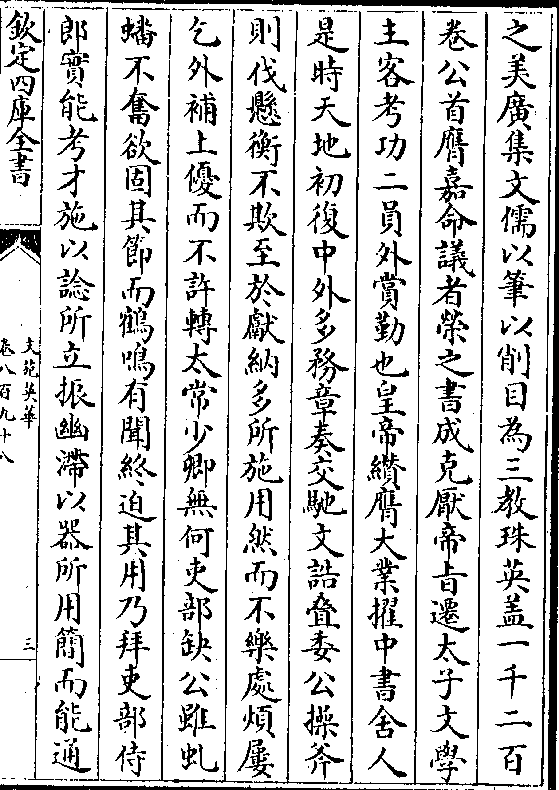 之美廣集文儒以筆以削目為三教珠英蓋一千二百
卷公首膺嘉命議者榮之書成克厭帝旨遷太子文學
主客考功二員外賞勤也皇帝纘膺大業擢中書舍人
是時天地初復中外多務章奏交馳文誥疊委公操斧
則伐懸衡不欺至於獻納多所施用然而不樂處煩屢
乞外補上優而不許轉太常少卿無何吏部缺公雖虬
蟠不奮欲固其節而鶴鳴有聞終迫其用乃拜吏部侍
郎實能考才施以諗所立振幽滯以器所用簡而能通
欽定四庫全書
文苑英華
卷八百九十八
三